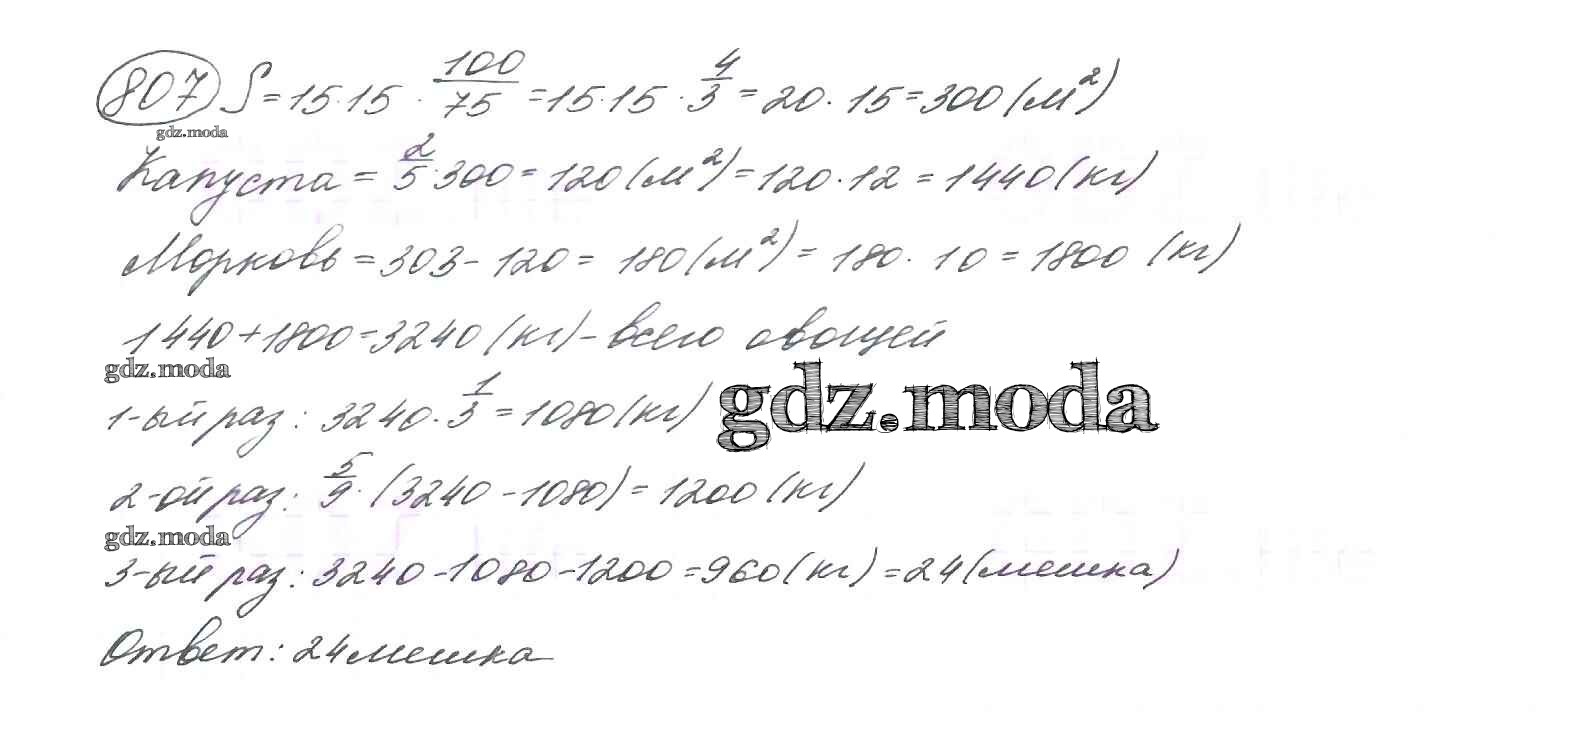 807 S = 15·15 · 100/75 = 15·15 · 4/3 = 20·15 = 300 (м²)
gdz.moda
Капуста = 2/5·300 = 120 (м²) = 120·12 = 1440 (кг)
Морковь = 303 - 120 = 180 (м²) = 180·10 = 1800 (кг)
1440 + 1800 = 3240 (кг) - всего овощей
gdz.moda
gdz.moda
1-ый раз: 3240·1/3 = 1080 (кг)
2-ой раз: 5/9·(3240 - 1080) = 1200 (кг)
gdz.moda
3-ый раз: 3240 - 1080 - 1200 = 960 (кг) = 24 (мешка)
Ответ: 24 мешка